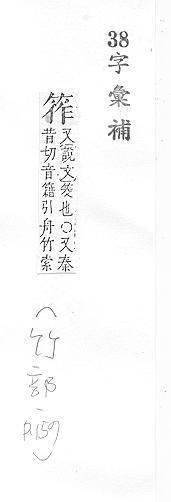 38字彙補
筰
又說文筊也○又秦
昔切音籍引舟竹索
(竹部 P.159)